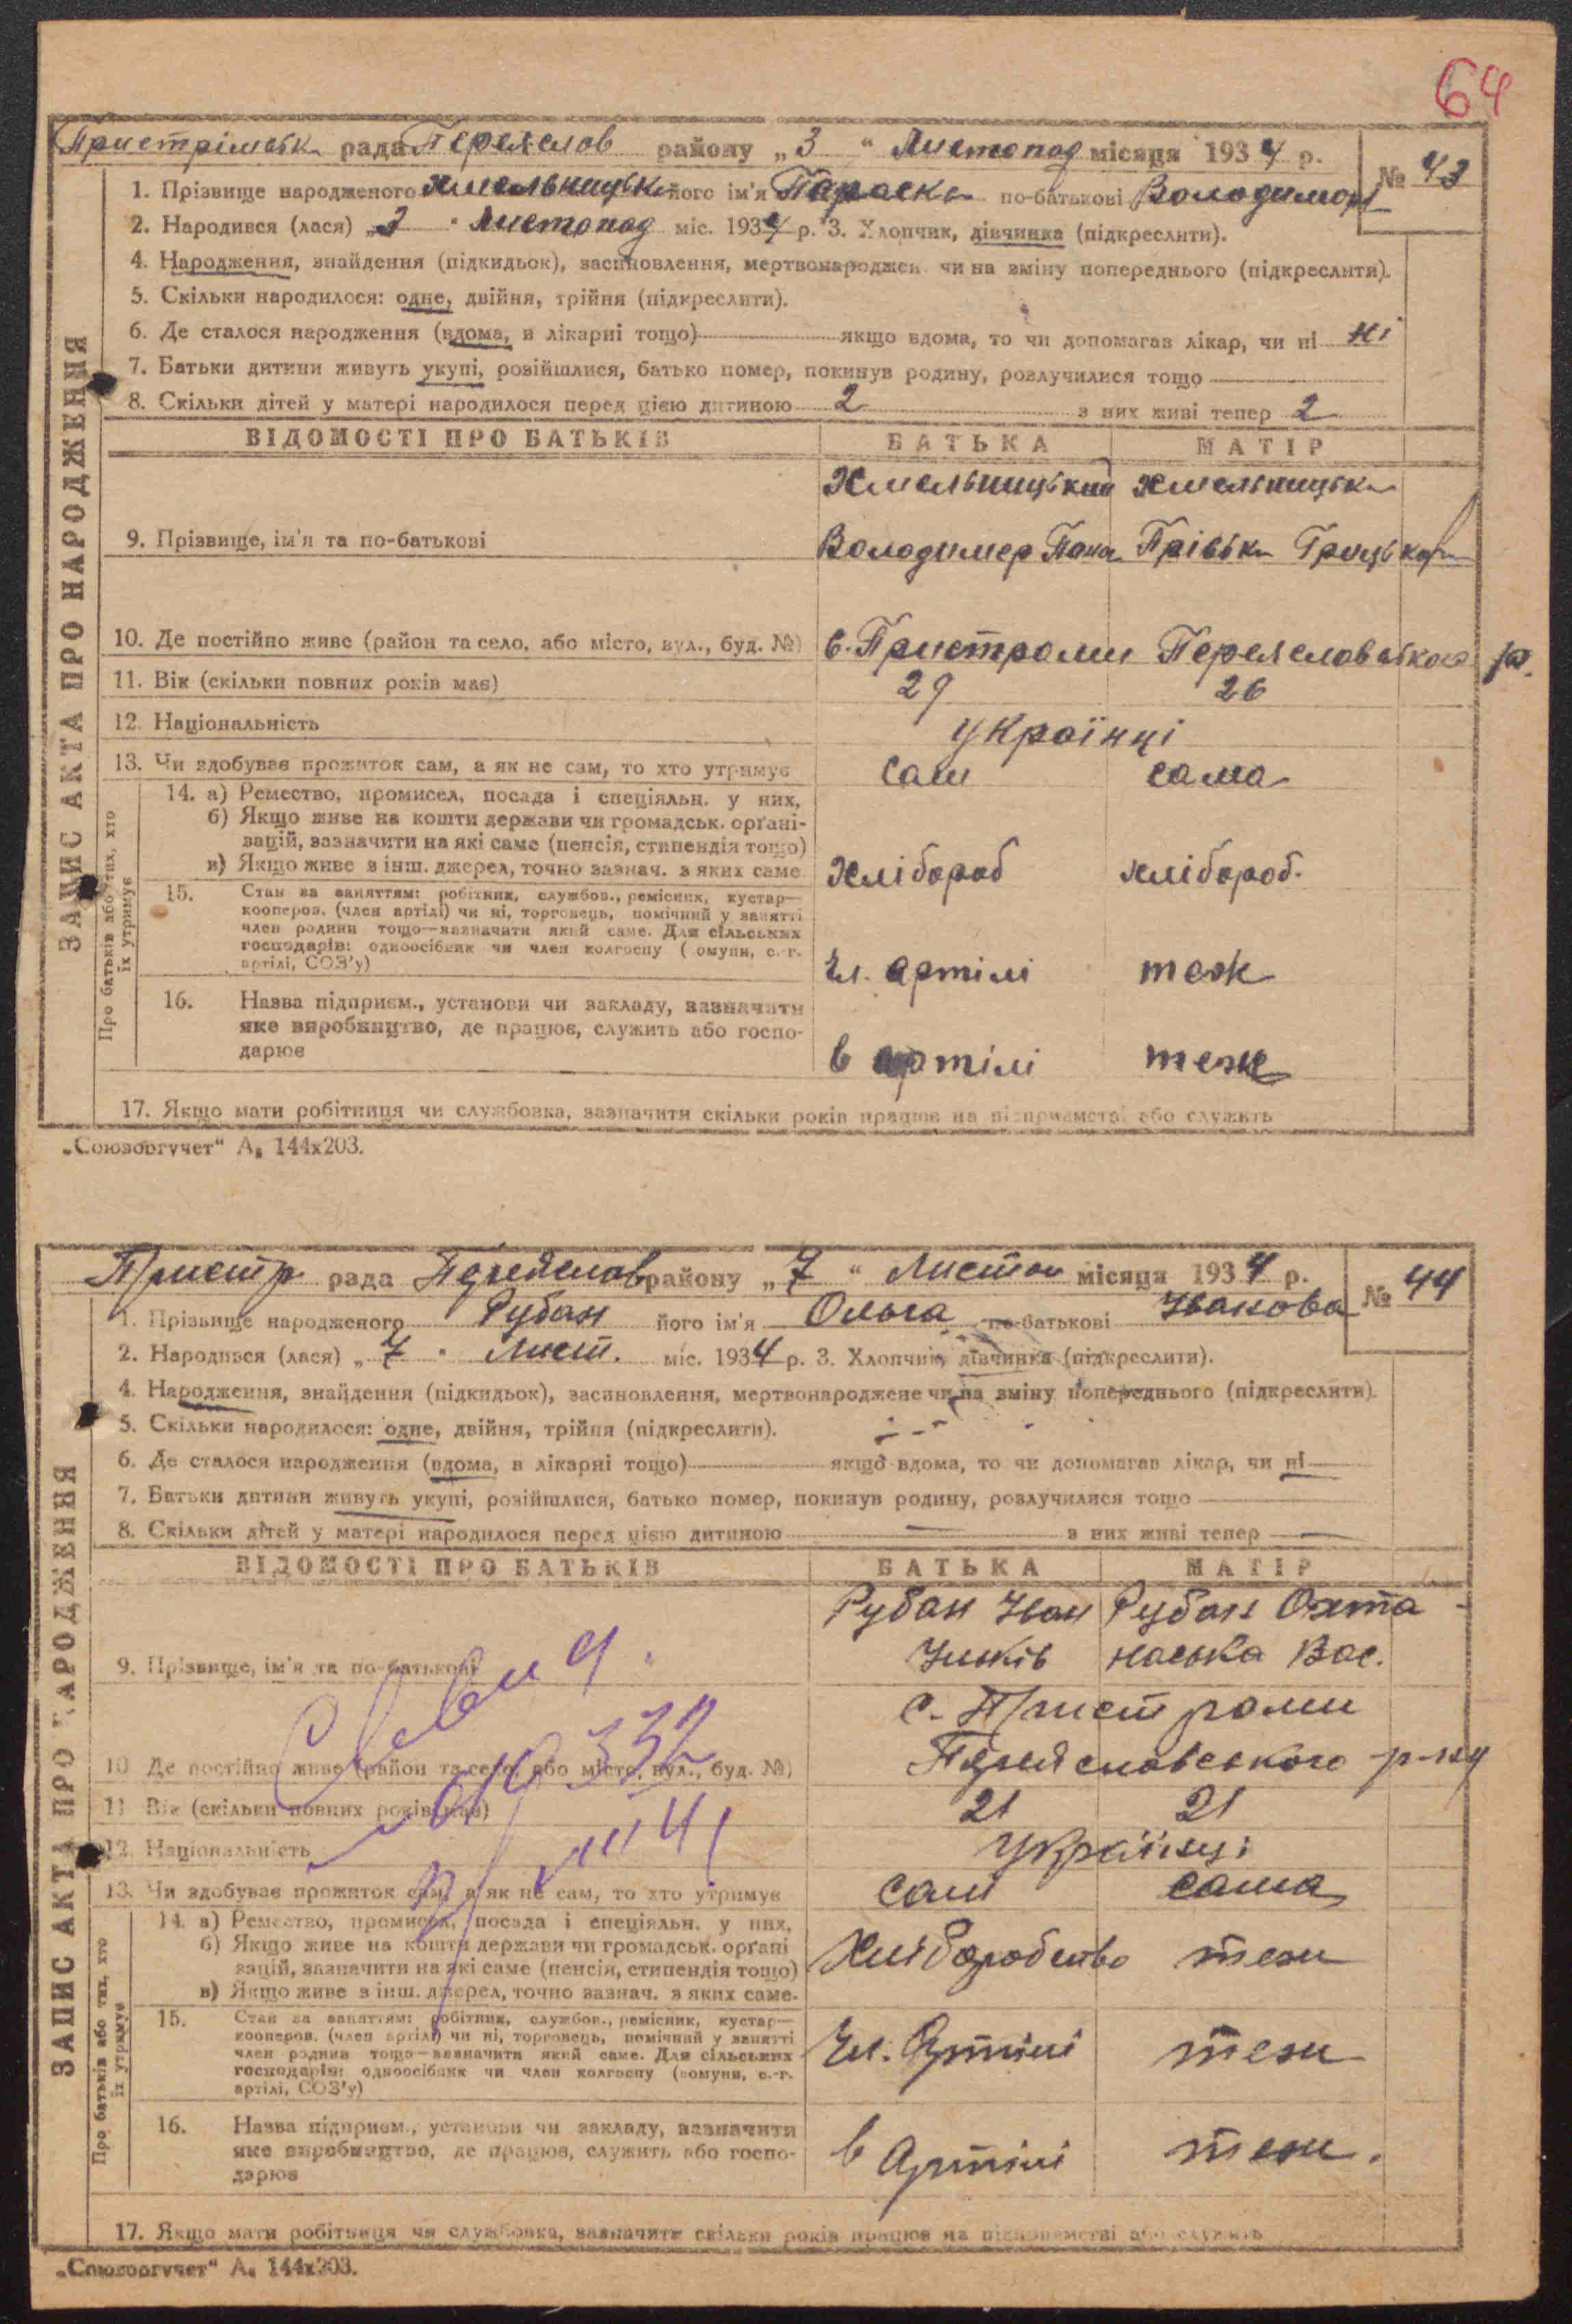 64
Пристрімськ рада Переяслов району „3“ Листопад місяця 1934 р.
№ 43
1. Прізвище народженого Хмельницьк його ім'я Параска по-батькові Володимор
2. Народився (лася) „2“ Листопад міс. 1934 р. 3. Хлопчик, дівчинка (підкреслити).
4. Народження, знайдення (підкидьок), засиновлення, мертвонароджен чи на зміну попереднього (підкреслити).
5. Скільки народилося: одне, двійня, трійня (підкреслити).
6. Де сталося народження (вдома, в лікарні тощо) якщо вдома, то чи допомагав лікар, чи ні ні
7. Батьки дитини живуть укупі, розійшлися, батько помер, покинув родину, розлучилися тощо
8. Скільки дітей у матері народилося перед цією дитиною 2 з них живі тепер 2
ВІДОМОСТІ ПРО БАТЬКІВ БАТЬКА МАТІР
Хмельницький Хмельницьк
9. Прізвище, ім'я та по-батькові Володимер Пана Грицьков
10. Де постійно живе (район та село, або місто, вул., буд. №) с. Пристроми Переяславського р.
11. Вік (скільки повних років має) 29 26
12. Національність українці
13. Чи здобуває прожиток сам, а як не сам, то хто утримує сам сама
14. а) Ремество, промисел, посада і спеціяльн. у них,
б) Якщо живе на кошти держави чи громадськ. орґані-
зацій, зазначити на які саме (пенсія, стипендія тощо)
в) Якщо живе з інш. джерел, точно зазнач. з яких саме хлібороб хлібороб.
15. Стан за заняттям: робітник, службов., ремісник, кустар—
кооперов. (член артілі) чи ні, торговець, помічний у занятті
член родини тощо—зазначити який саме. Для сільських
господарів: одноосібник чи член колгоспу ( омуни, с.-г.
артілі, СОЗ'у) чл. артілі теж
16. Назва підприєм., установи чи закладу, зазначити
яке виробництво, де працює, служить або госпо-
дарює в артілі теж
17. Якщо мати робітниця чи службовка, зазначити скільки років працює на підприємстві або служить
ЗАПИС АКТА ПРО НАРОДЖЕННЯ
Про батьків або тих, хто їх утримує
„Союзоргучет“ А, 144х203.
Пристр рада Переяслав району „7“ Листоп місяця 1934 р.
№ 44
1. Прізвище народженого Рубан його ім'я Ольга по-батькові Іванова
2. Народився (лася) „7“ Лист. міс. 1934 р. 3. Хлопчик, дівчинка (підкреслити).
4. Народження, знайдення (підкидьок), засиновлення, мертвонароджене чи на зміну попереднього (підкреслити).
5. Скільки народилося: одне, двійня, трійня (підкреслити).
6. Де сталося народження (вдома, в лікарні тощо) якщо вдома, то чи допомагав лікар, чи ні
7. Батьки дитини живуть укупі, розійшлися, батько помер, покинув родину, розлучилися тощо
8. Скільки дітей у матері народилося перед цією дитиною — з них живі тепер —
ВІДОМОСТІ ПРО БАТЬКІВ БАТЬКА МАТІР
Рубан Іван Рубан Охта
9. Прізвище, ім'я та по-батькові Ільків наська Вас.
с. Пристроми
10 Де постійно живе (район та село, або місто, вул., буд. №) Переяславського р-ну
11 Вік (скільки повних років має) 21 21
12. Національність українці
13. Чи здобуває прожиток сам, а як не сам, то хто утримує сам сама
14. а) Ремество, промисел, посада і спеціяльн. у них,
б) Якщо живе на кошти держави чи громадськ. орґані
зацій, зазначити на які саме (пенсія, стипендія тощо) Хліборобство теж
в) Якщо живе з інш. джерел, точно зазнач. з яких саме.
15. Стан за заняттям: робітник, службов., ремісник, кустар—
кооперов. (член артілі) чи ні, торговець, помічний у занятті
член родини тощо—зазначити який саме. Для сільських чл. Артілі теж
господарів: одноосібник чи член колгоспу (комуни, с.-г.
артілі, СОЗ'у)
16. Назва підприєм., установи чи закладу, зазначити
яке виробництво, де працює, служить або госпо- в Артілі теж.
дарює
17. Якщо мати робітниця чи службовка, зазначити скільки років працює на підприємстві або служить
ЗАПИС АКТА ПРО НАРОДЖЕННЯ
Про батьків або тих, хто їх утримує
„Союзоргучет“ А, 144х203.